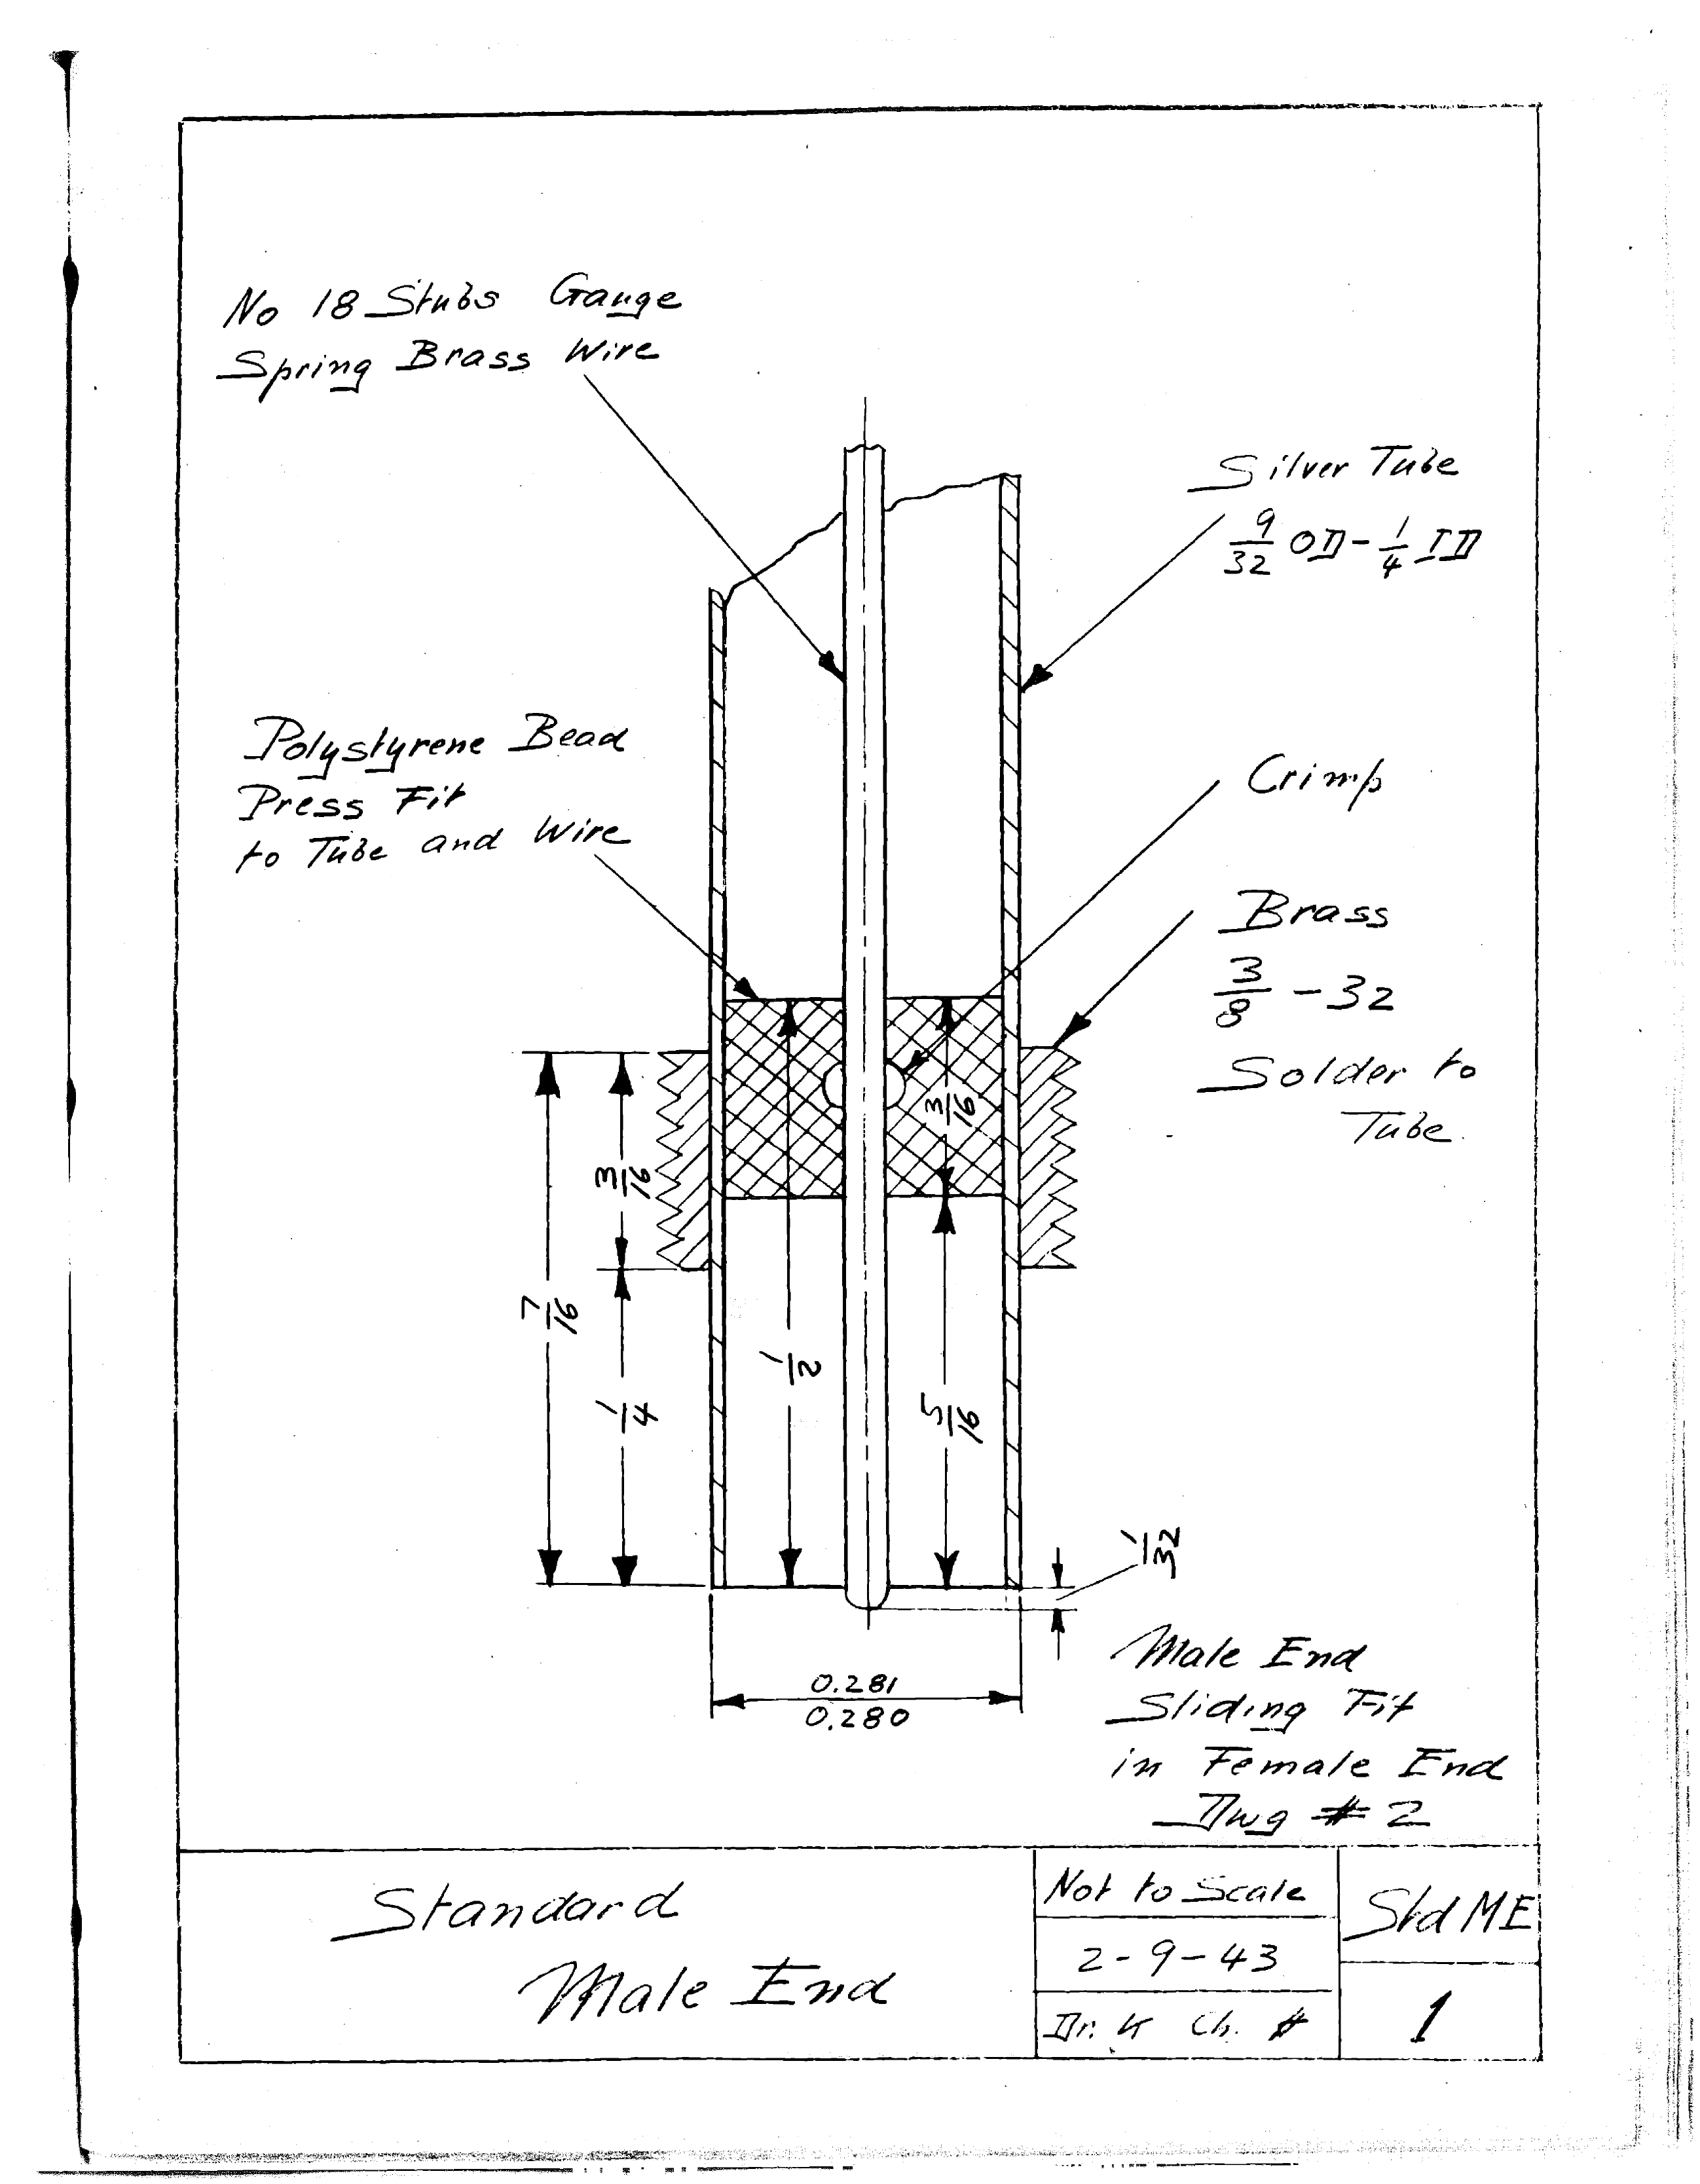 No 18 Stubs Gauge
Spring Brass Wire
Silver Tube
9/32 OD - 1/4 ID
Polystyrene Bead
Press Fit
to Tube and Wire
Crimp
Brass
3/8 - 32
Solder to
Tube
3/16
3/16
7/16
1/2
1/4
5/16
1/32
0.281
0.280
Male End
Sliding Fit
in Female End
Dwg # 2
Standard
Male End
Not to Scale
2-9-43
Dr. K Ch. #
Std ME
1